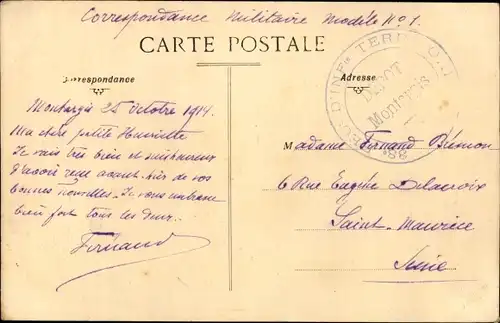 Correspondance Militaire Modèle No 1.
CARTE POSTALE
Correspondance
Adresse
RÉGt D'INFie TERRIT
DÉPOT
Montargis
38
Montargis 25 Octobre 1914.
Ma chère petite Henriette
Je vais très bien et suis heureux
d'avoir reçu avant-hier de vos
bonnes nouvelles. Je vous embrasse
bien fort tous les deux.
Fernand
Madame Fernand
6 Rue Eugène Delacroix
Saint-Maurice
Seine